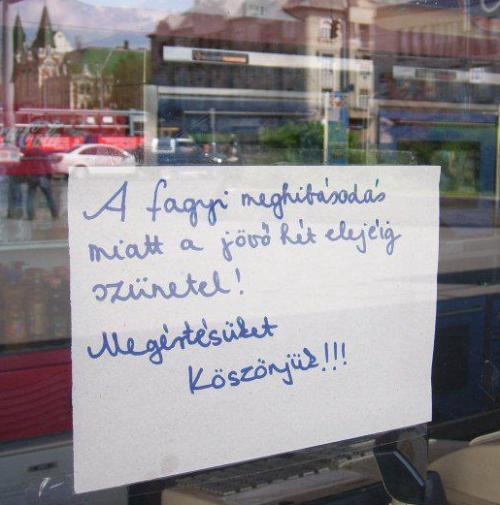 A fagyi meghibásodás
miatt a jövő hét elejéig
szünetel!
Megértésüket
Köszönjük!!!